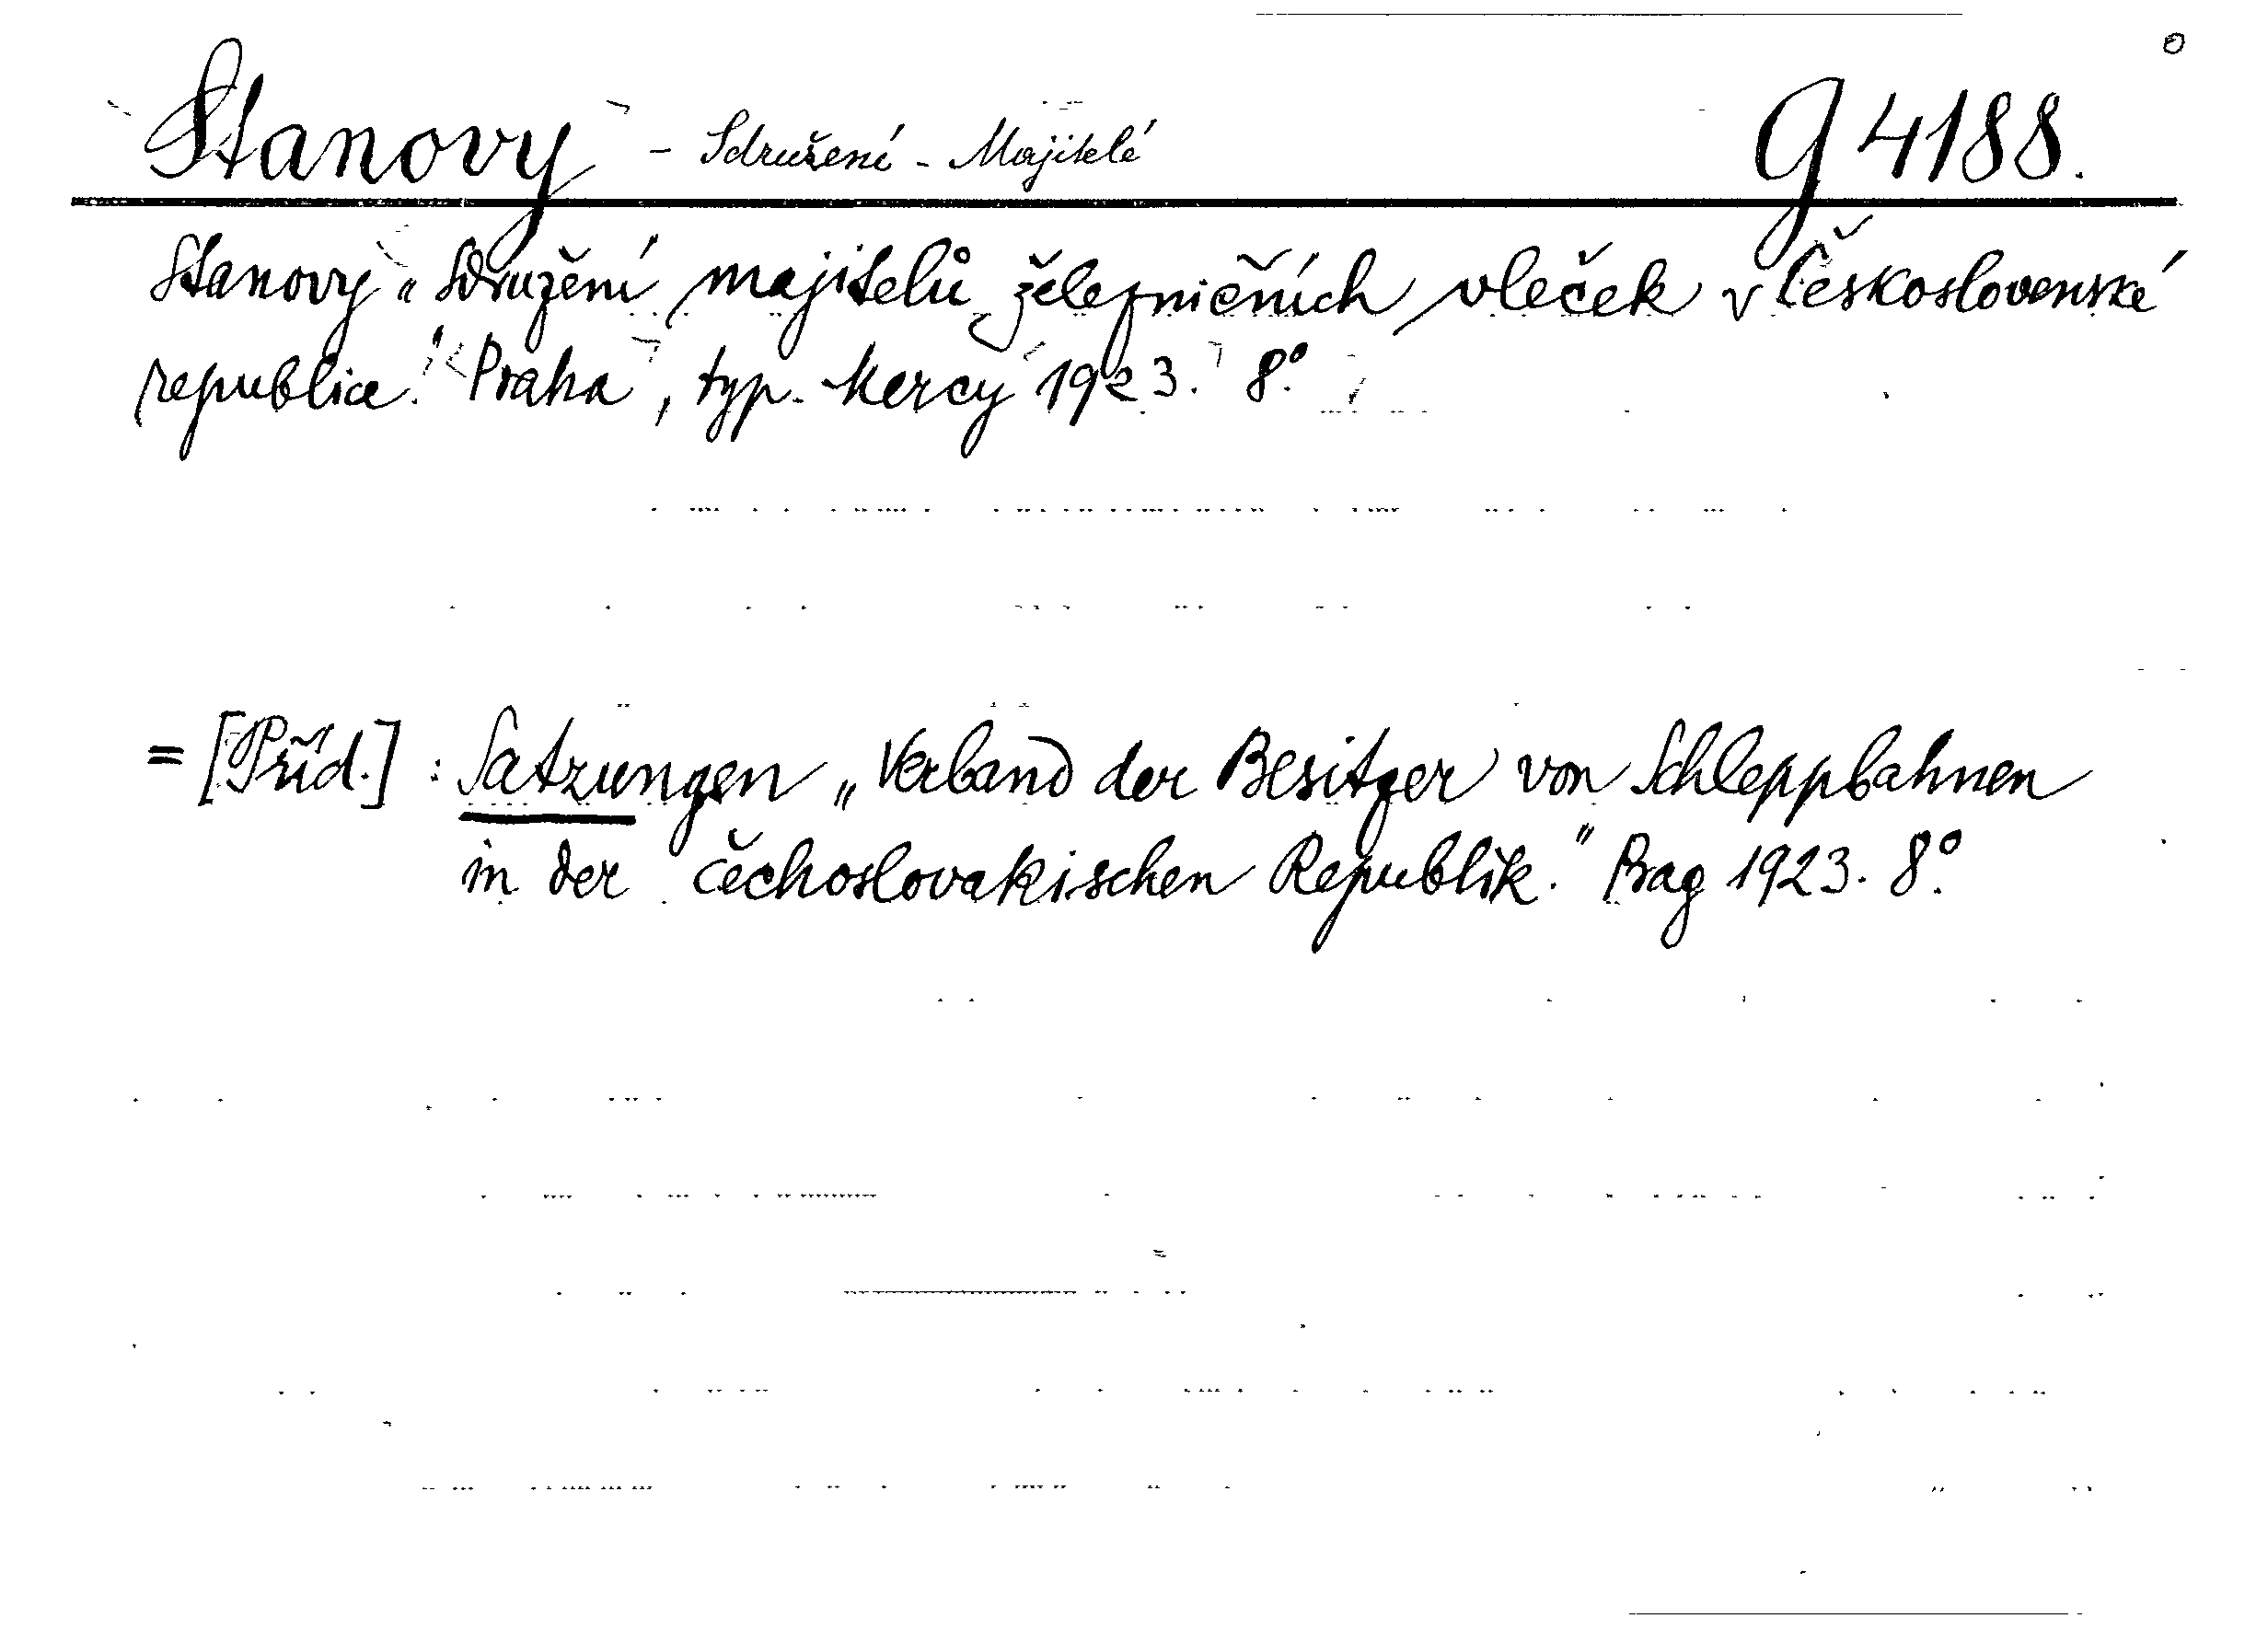 Stanovy - Sdružení - Majitelé G 4188.
Stanovy „Sdružení majitelů železničních vleček v Československé
republice." Praha, typ. Mercy 1923. 8°.
= [Příd.] : Satzungen „Verband der Besitzer von Schleppbahnen
in der čechoslovakischen Republik." Prag 1923. 8°.